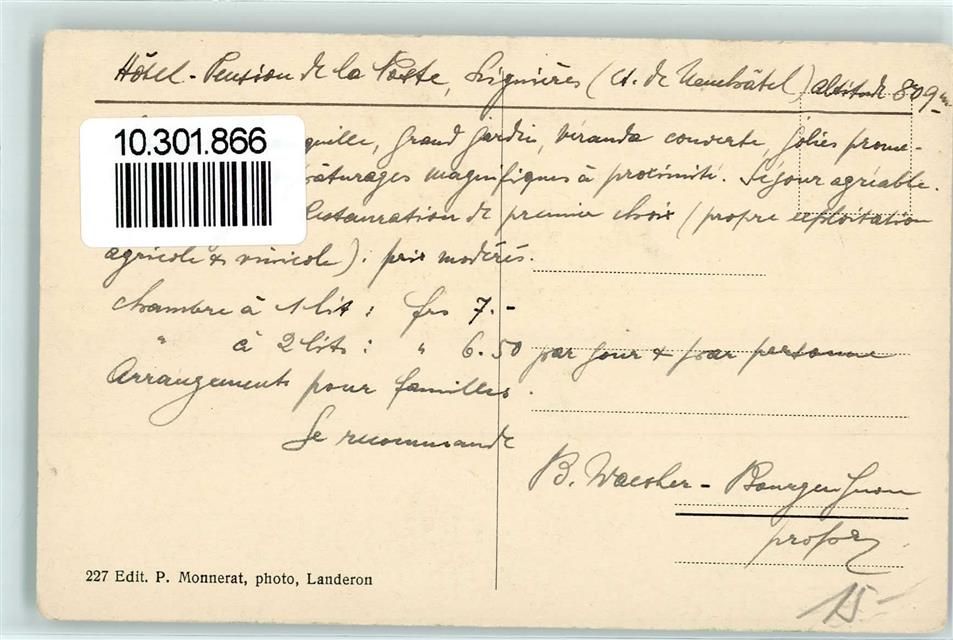 Hôtel-Pension de la Poste, Lignières (Ct. de Neuchâtel) altitude 809 m
10.301.866
quille, grand jardin, véranda couverte, jolies prome-
pâturages magnifiques à proximité. Séjour agréable.
Restauration de premier choix (propre exploitation
agricole & vinicole). prix modérés.
Chambre à 1 lit : frs 7.-
" à 2 lits : " 6.50 par jour & par personne
Arrangements pour familles.
Se recommande
B.
propr
227 Edit. P. Monnerat, photo, Landeron
15-